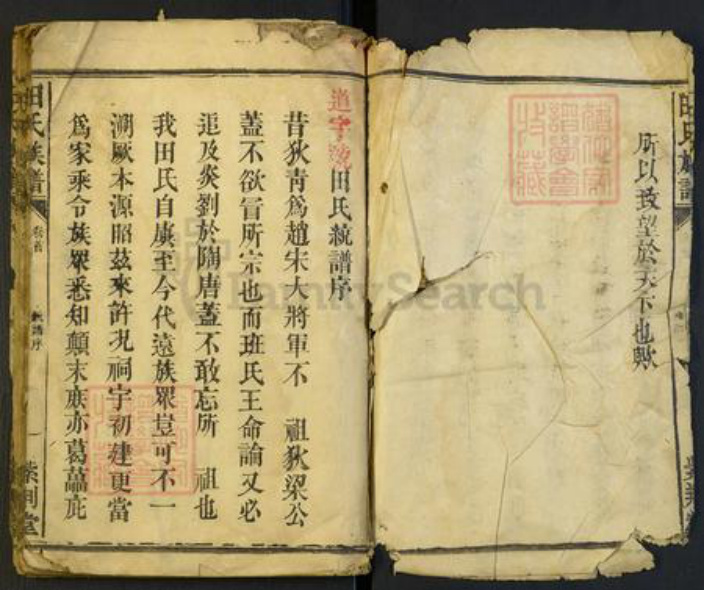 所以致望於天下也歟
道字號
田氏統譜序
昔狄青爲趙宋大將軍不　祖狄梁公
蓋不欲冒所宗也而班氏王命論又必
追及炎劉於隋唐蓋不敢忘所　祖也
我田氏自虞至今代遠族眾豈可不一
溯厥本源昭茲來許況祠宇初建更當
爲家乘令族眾悉知顛末庶亦葛藟庇
田氏族譜
卷首
統譜序
紫荊堂
FamilySearch